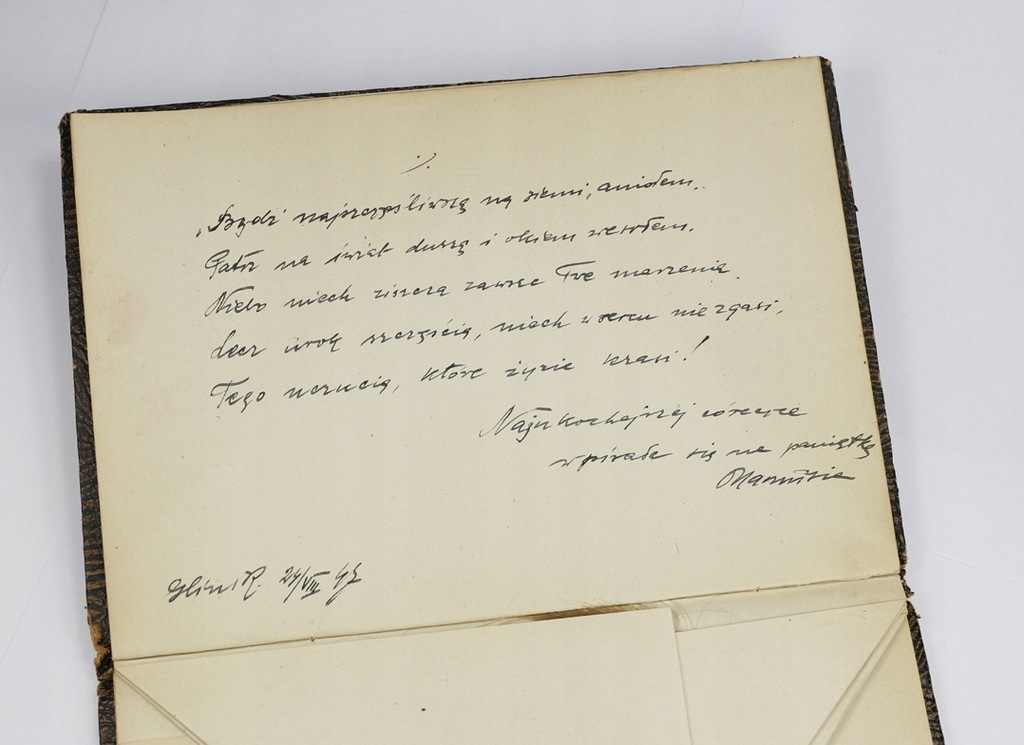 ./.
„Bądź najszczęśliwszą na ziemi, aniołem.
Patrz na świat duszą i okiem wesołem.
Niebo niech ziszczą zawsze Twe marzenia.
Lecz urok szczęścia, niech w sercu nie zgasi,
Tego uczucia, które życie krasi!
Najukochańszej córeczce
wpisała się na pamiątkę
Mamusia
24/VIII 47